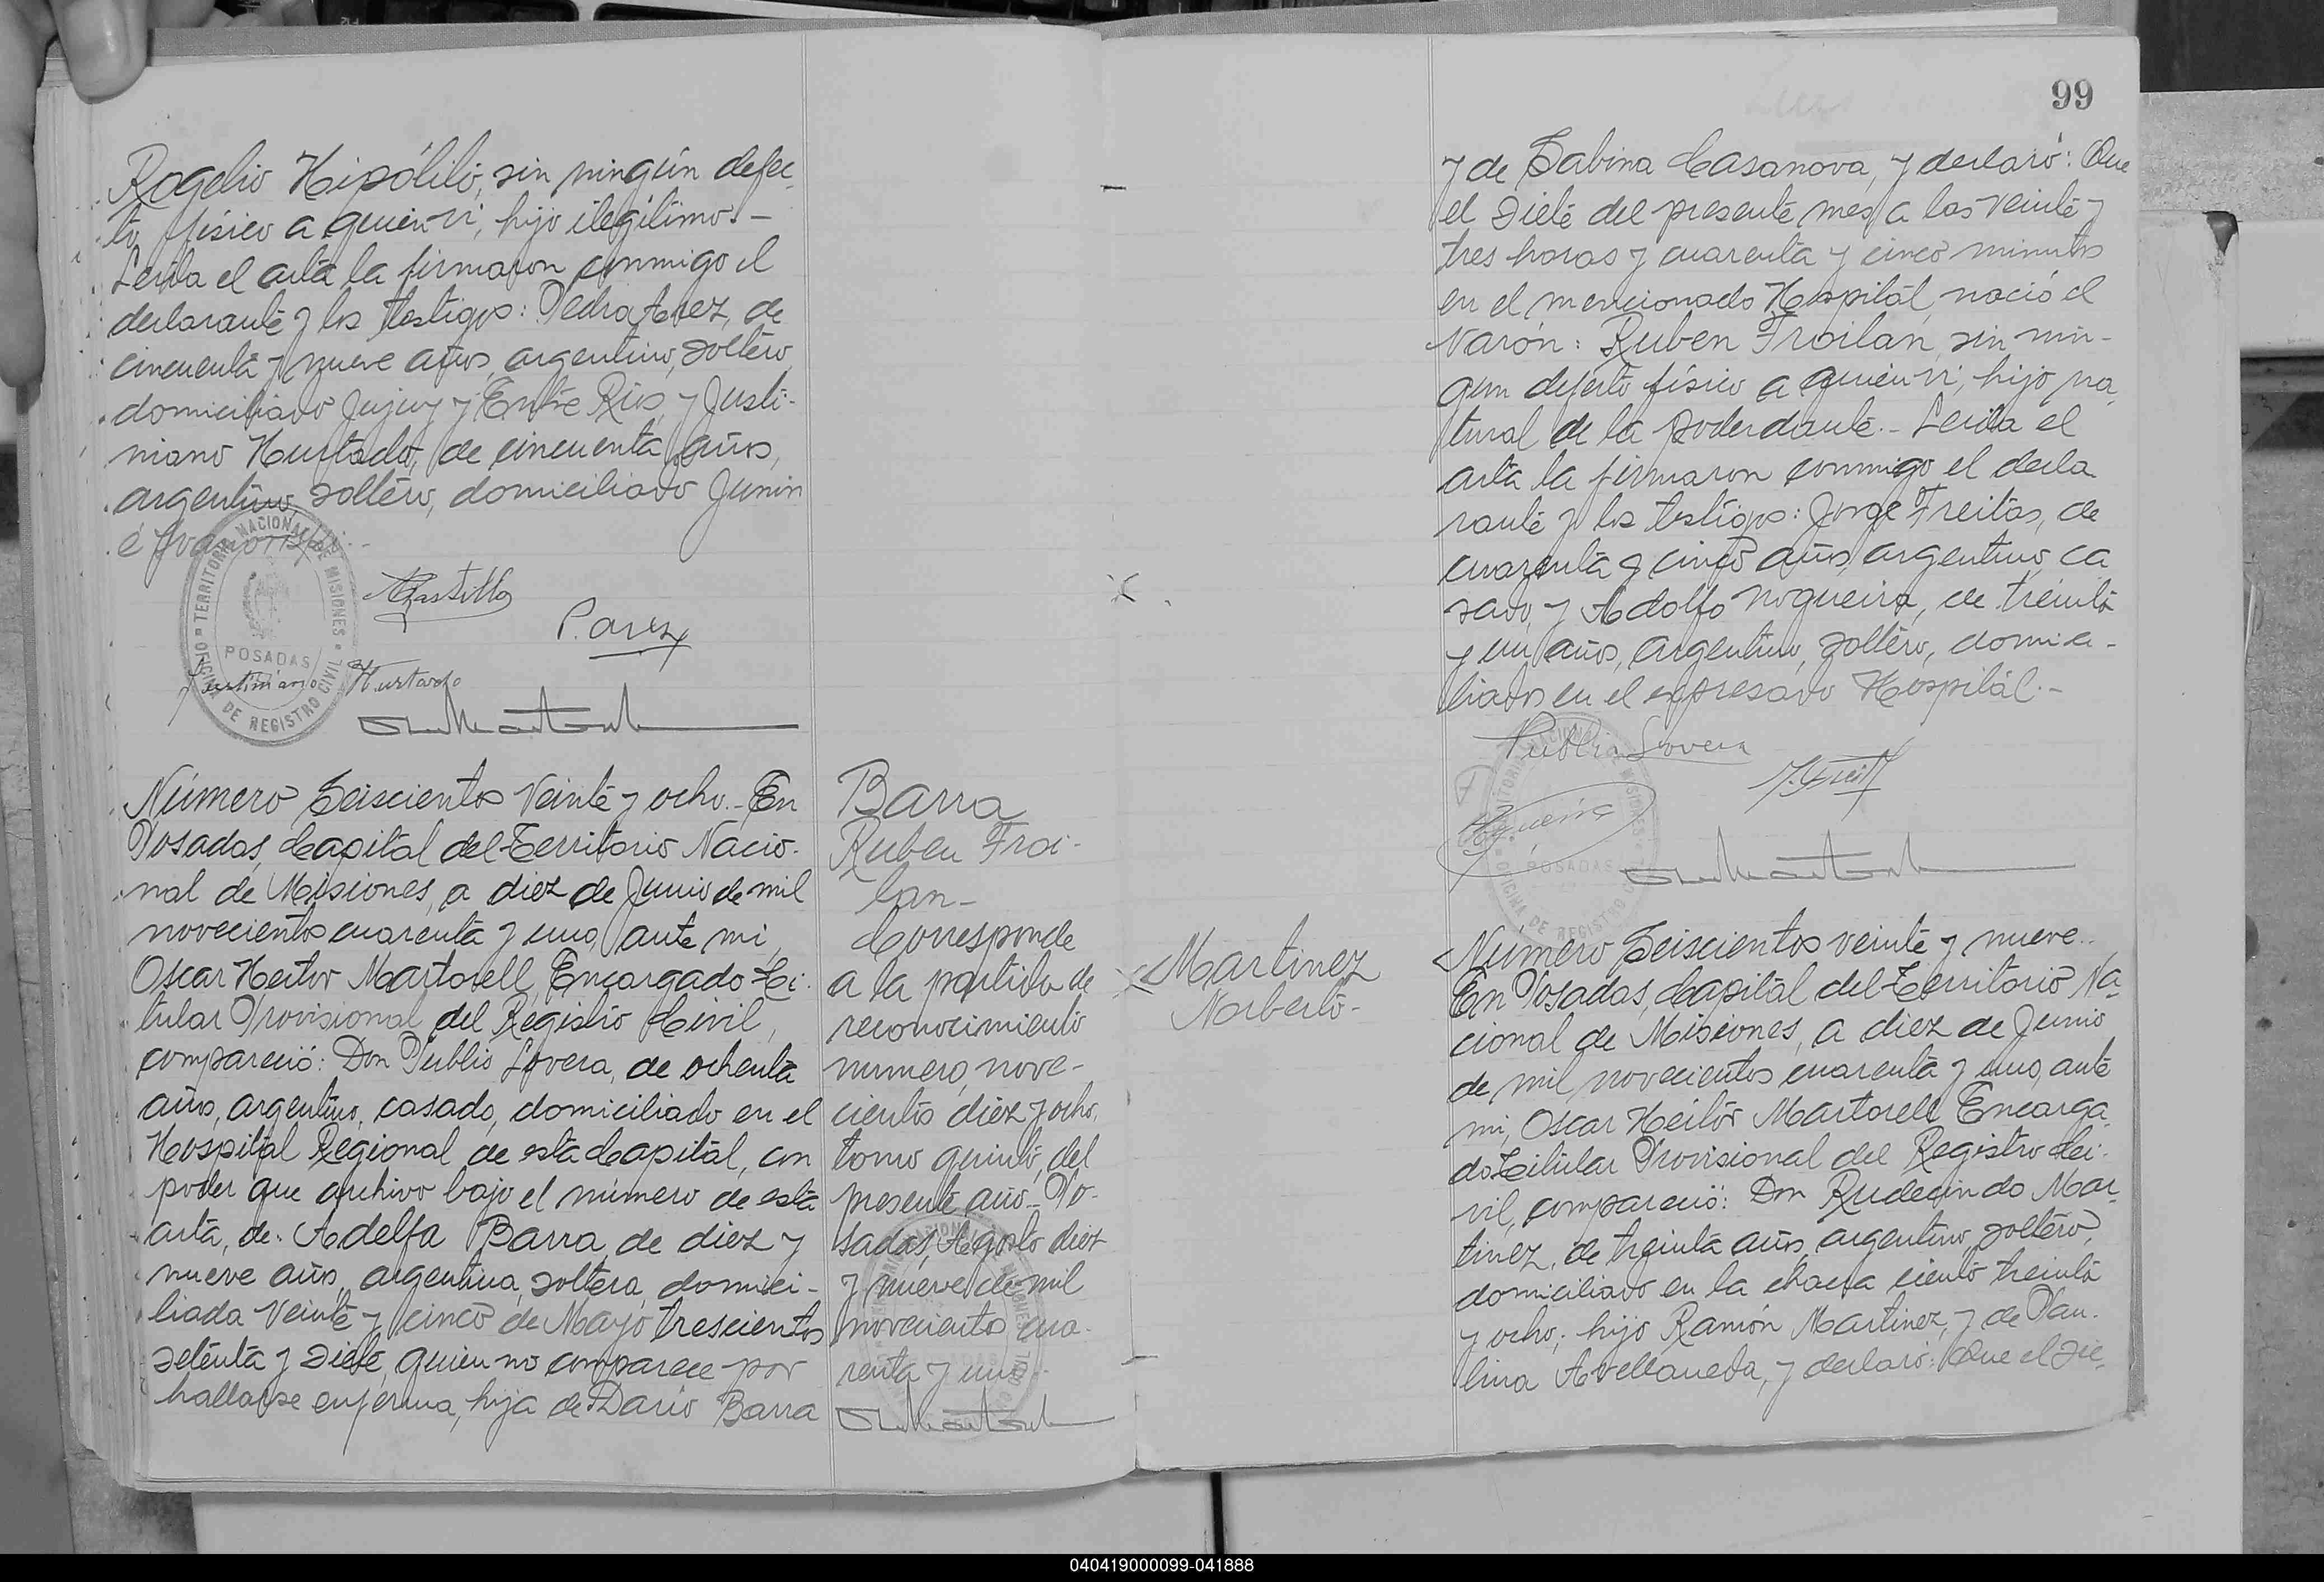 Rogelio Hipólito, sin ningún defec-
to físico a quien vi, hijo ilegítimo.-
Leída el acta la firmaron conmigo el
declarante y los testigos: Pedro Arez, de
cincuenta y nueve años, argentino, soltero
domiciliado Jujuy y Entre Ríos, y Justi-
niano Hurtado, de cincuenta años,
argentino, soltero, domiciliado Junin
é
TERRITORIO NACIONAL DE MISIONES
POSADAS
OFICINA DE REGISTRO CIVIL
Castillo
P. Arez
Justiniano Hurtado
Número Seiscientos Veinte y ocho.- En
Posadas, Capital del Territorio Nacio-
nal de Misiones, a diez de Junio de mil
novecientos cuarenta y uno, ante mi,
Oscar Hector Martorell, Encargado Ti-
tular Provisional del Registro Civil,
compareció: Don Publio Lovera, de ochenta
años, argentino, casado, domiciliado en el
Hospital Regional de esta Capital, con
poder que archivo bajo el número de esta
acta, de Adelfa Barra, de diez y
nueve años, argentina, soltera, domici-
liada Veinte y cinco de Mayo trescientos
setenta y siete, quien no comparece por
hallarse enferma, hija de Darío Barra
Barra
Ruben Froi-
lan-
Corresponde
a la partida de
reconocimiento
numero, nove-
cientos diez y ocho,
tomo quinto, del
presente año.- Po-
sadas, Agosto diez
y nueve de mil
novecientos cua-
renta y uno.
99
y de Sabina Casanova, y declaró: Que
el siete del presente mes a las veinte y
tres horas y cuarenta y cinco minutos
en el mencionado Hospital, nació el
varón: Ruben Froilan, sin nin-
gun defecto físico a quien vi, hijo na-
tural de la poderdante.- Leída el
acta la firmaron conmigo el decla
rante y los testigos: Jorge Freitas, de
cuarenta y cinco años, argentino, ca
sado, y Adolfo Nogueira, de treinta
y un años, argentino, soltero, domici-
liados en el expresado Hospital.-
Publio Lovera
J. Freit
Nogueira
TERRITORIO NACIONAL DE MISIONES
POSADAS
OFICINA DE REGISTRO CIVIL
Martinez
Norberto-
Número Seiscientos veinte y nueve..
En Posadas, Capital del Territorio Na-
cional de Misiones, a diez de Junio
de mil novecientos cuarenta y uno, ante
mi, Oscar Heitor Martorell Encarga-
do Titular Provisional del Registro Ci-
vil, compareció: Don Rudecindo Mar-
tinez, de treinta años, argentino, soltero,
domiciliado en la chacra ciento treinta
y ocho; hijo Ramón Martinez, y de Pau-
lina Avellaneda, y declaró: Que el sie-
040419000099-041888